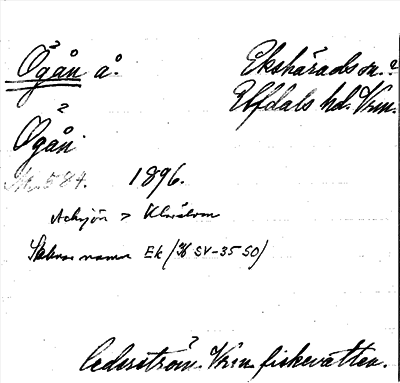 Ögån å. Ekshärads sn.?
Elfdals hd. Vrm.
?
Ögån
584. 1896.
> Klarälven
Saknar namn Ek (K SV-35 SO)
?
Cederström. Vrm. fiskevatten.